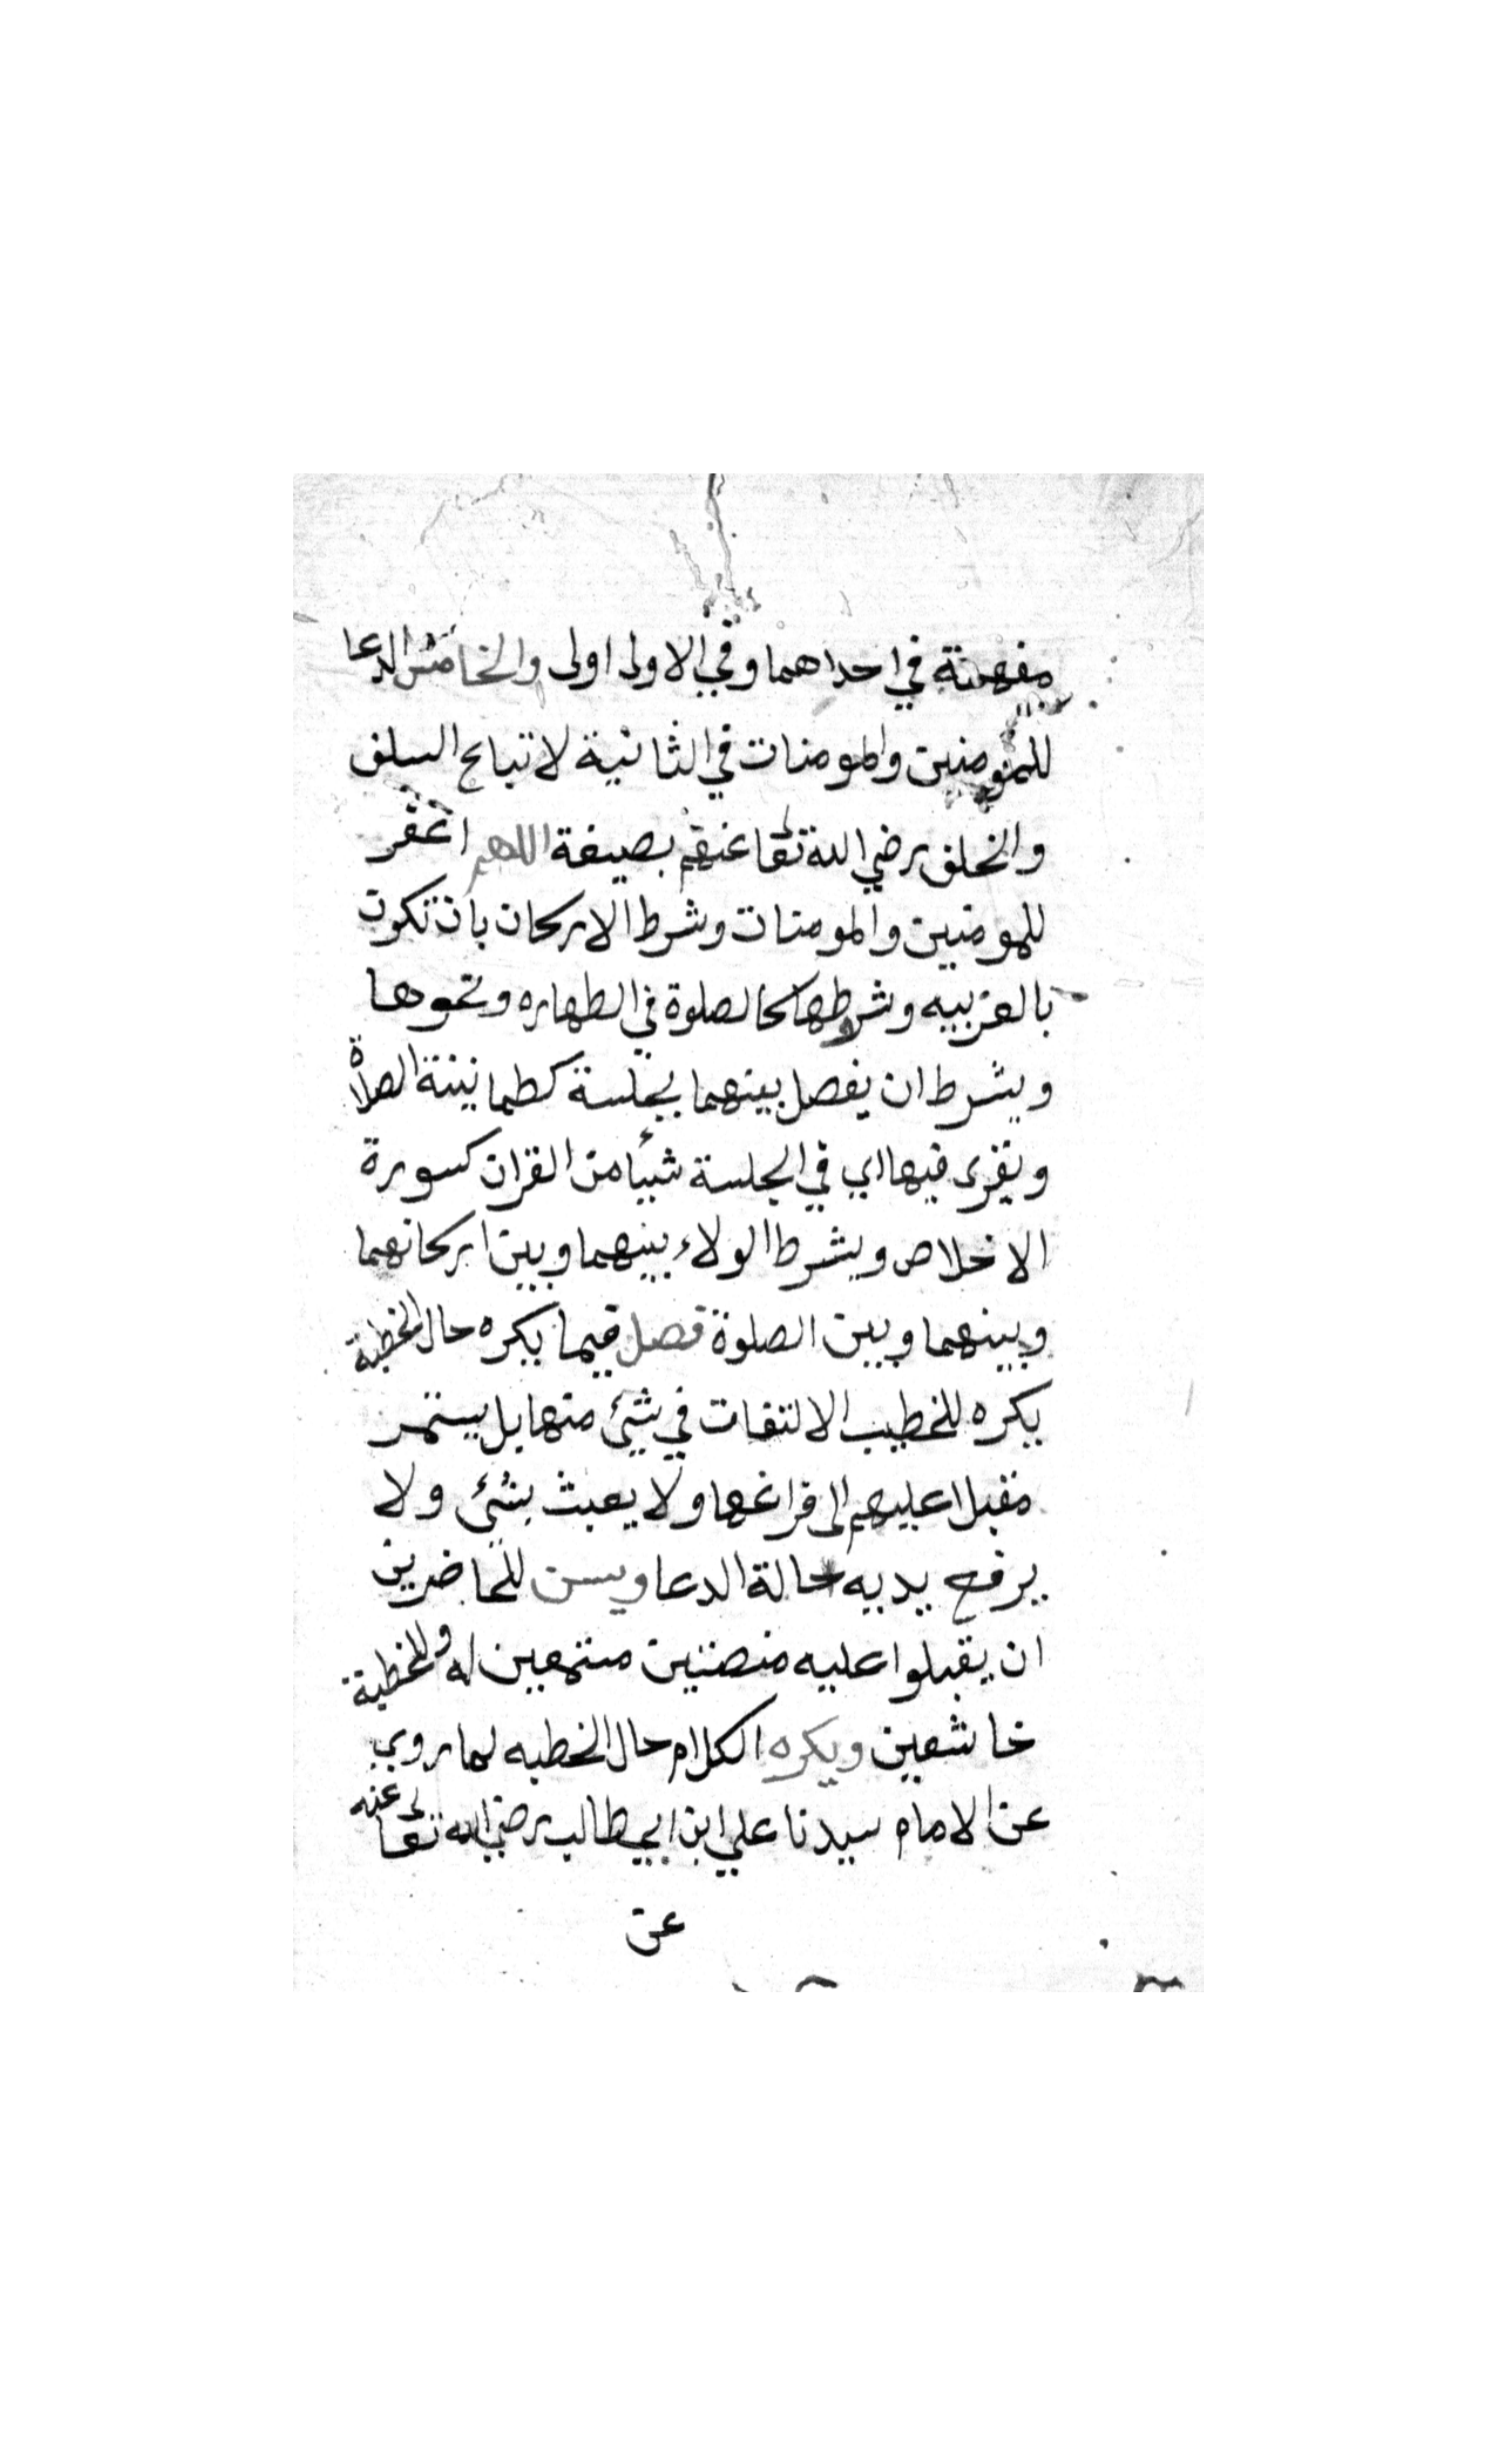 مفهمة في احداهما وفي الاولى اولى والخامس الدعا
للمومنين والمومنات في الثانية لاتباع السلف
والخلف رضي الله تعا عنهم بصيغة اللهم اغفر
للمومنين والمومنات وشرط الاركان بان تكون
بالعربيه وشرطها كالصلوة في الطهاره ونحوها
ويشرط ان يفصل بينهما بجلسة كطمانينة الصلاة
ويقرى فيها اي في الجلسة شيأ من القران كسورة
الاخلاص ويشرط الولاء بينهما وبين اركانهما
وبينهما وبين الصلوة فصل فيما يكره حال الخطبة
يكره للخطيب الالتفات في شئ منها بل يستمر
مقبلا عليهم الى فراغها ولا يعبث بشئ ولا
يرفع يديه حالة الدعا ويسن للحاضرين
ان يقبلوا عليه منصتين مستمعين له وللخطبة
خاشعين ويكره الكلام حال الخطبه لما روي
عن الامام سيدنا علي ابن ابي طالب رضي الله تعالى عنه
عن